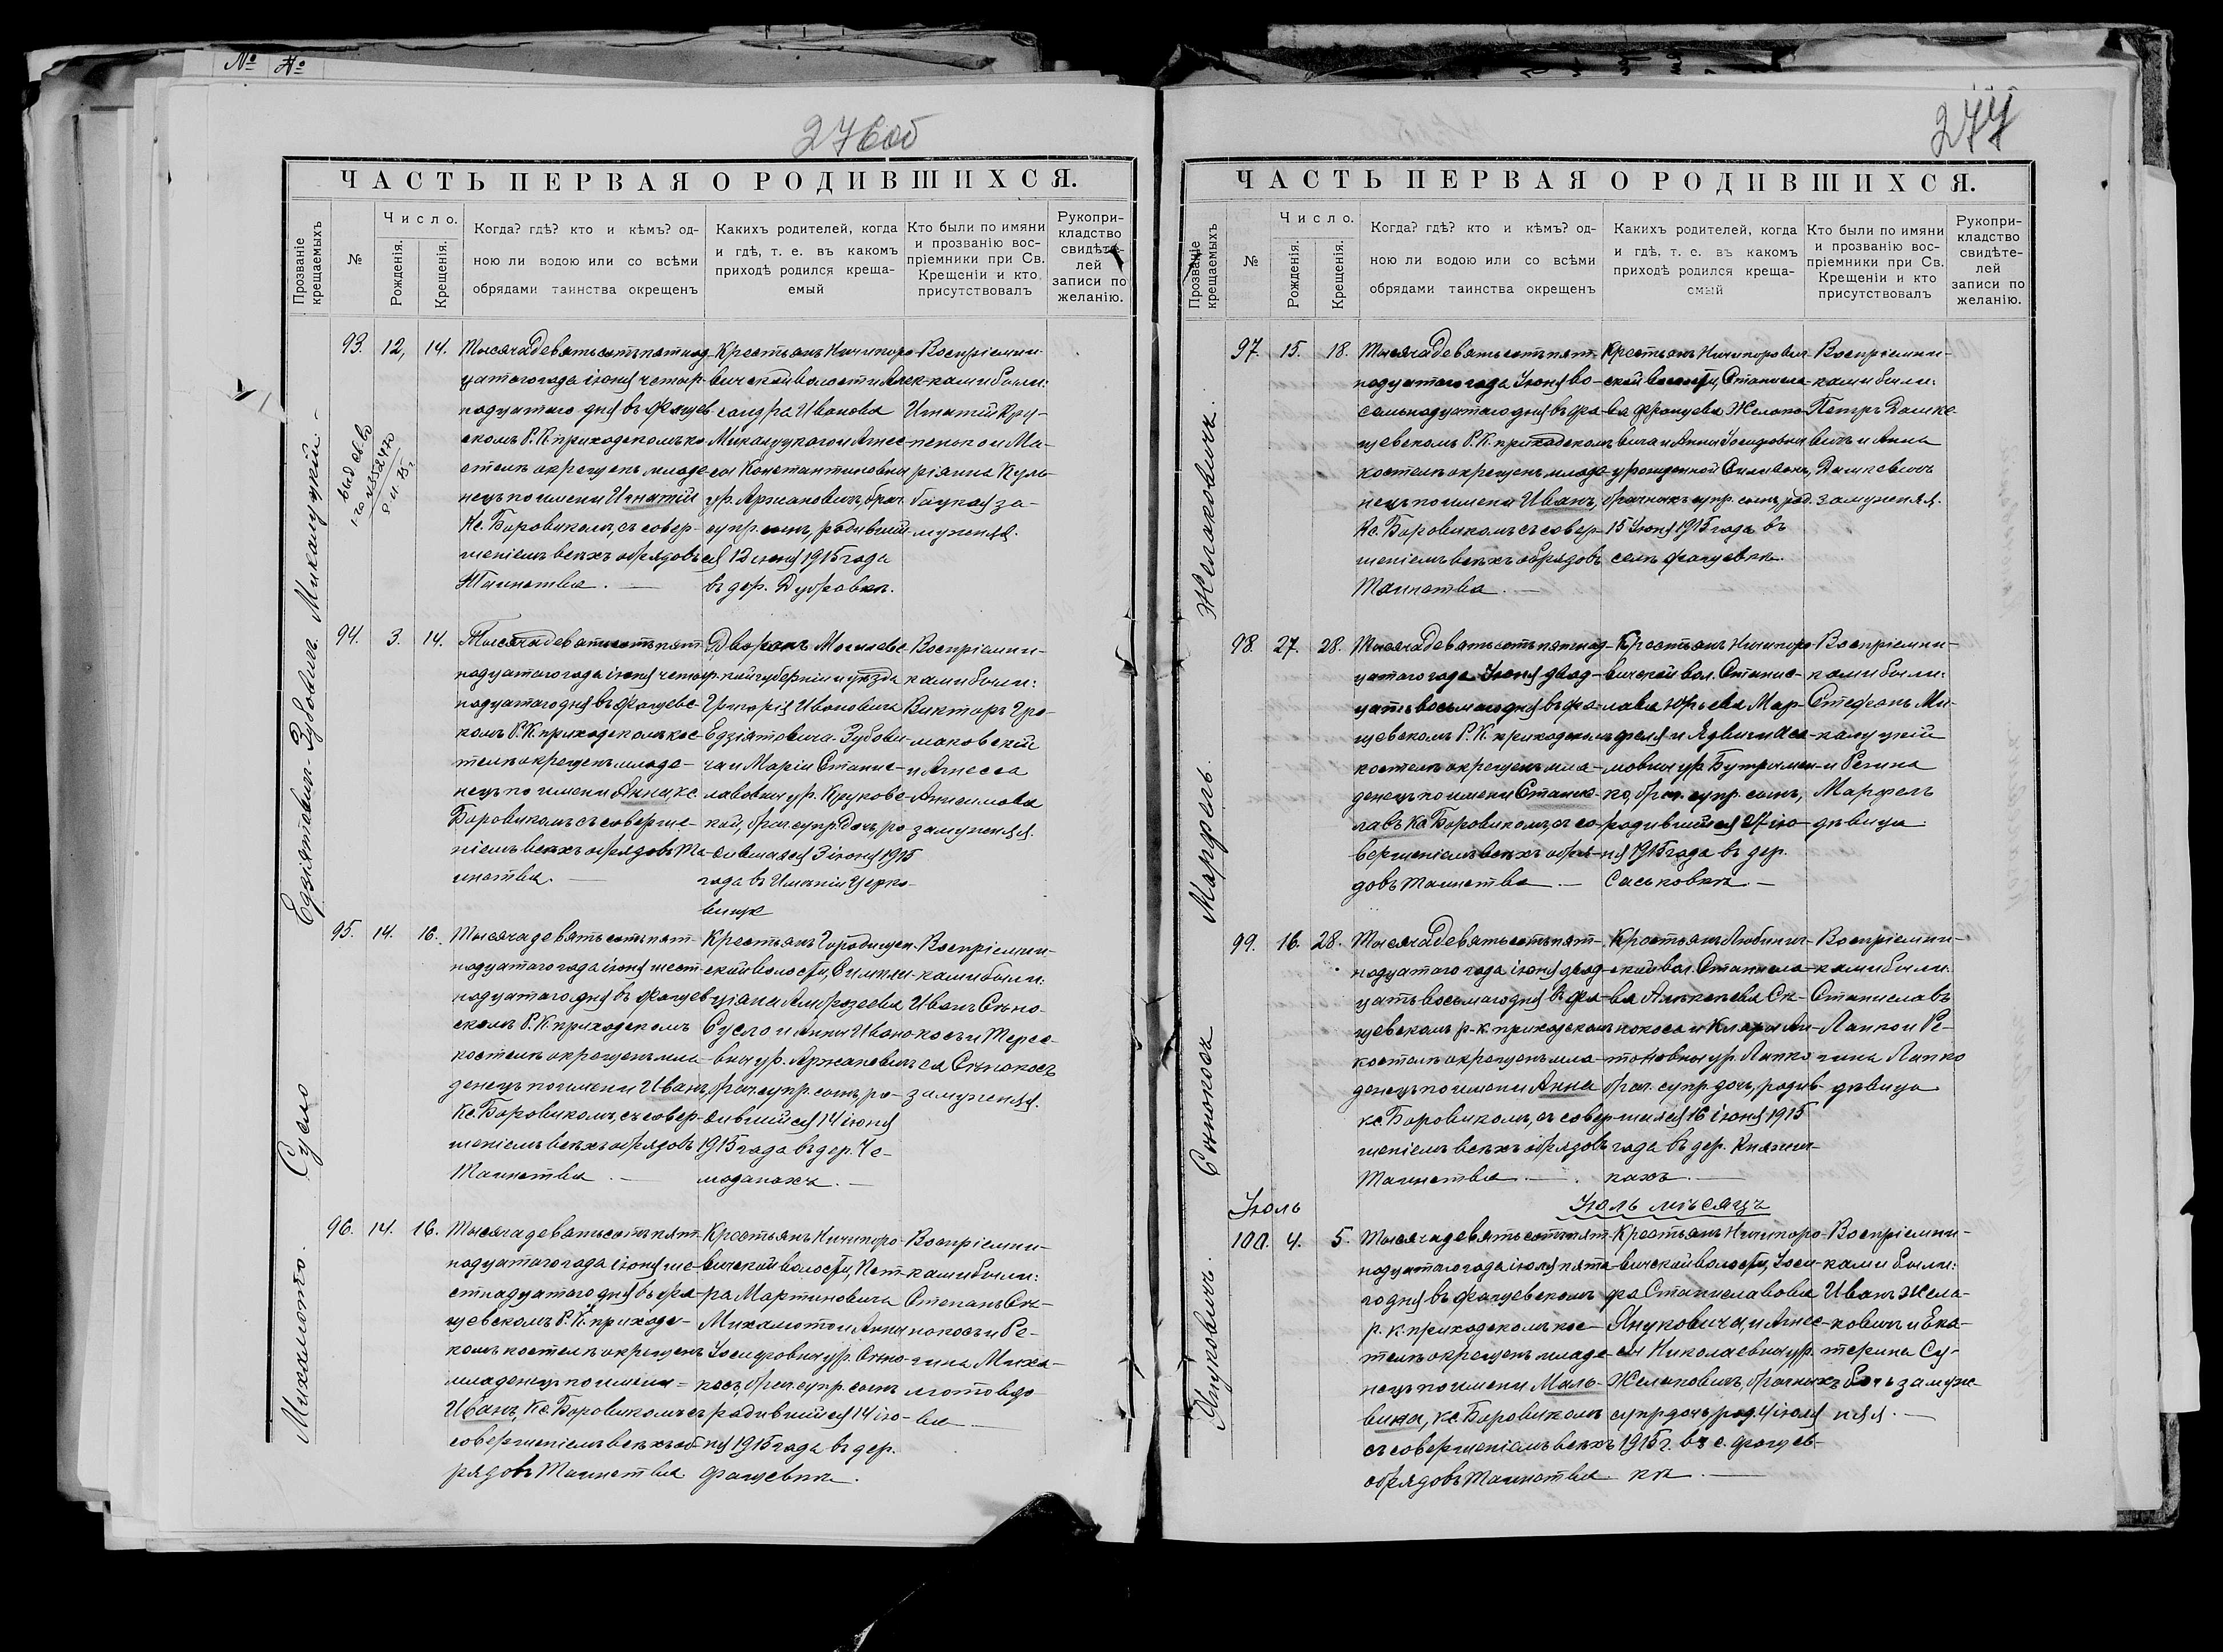 № №
276об
ЧАСТЬ ПЕРВАЯ О РОДИВШИХСЯ.
Прозваніе крещаемыхъ
№
Число.
Рожденія.
Крещенія.
Когда? гдѣ? кто и кѣмъ? од-
ною ли водою или со всѣми
обрядами таинства окрещенъ
Какихъ родителей, когда
и гдѣ, т. е. въ какомъ
приходѣ родился креща-
емый
Кто были по имяни
и прозванію вос-
пріемники при Св.
Крещеніи и кто
присутствовалъ
Рукопри-
кладство
свидѣте-
лей
записи по
желанію.
Микалуцкій.
93. 12, 14.
Тысяча девятьсотъ пятнад-
цатаго года іюня четыр-
надцатаго дня въ Фащев-
скомъ Р. К. приходскомъ ко-
стелѣ окрещенъ младе-
нецъ по имени Игнатій
Кс. Боровикомъ, съ совер-
шеніемъ всѣхъ обрядовъ
Таинства. —
Крестьянъ Ничипоро-
вичской волости Алек-
сандра Иванова
Микалуцкаго и Агнес-
сы Константиновны
ур. Аржановичъ, брач.
супр. сынъ, родившій-
ся 12 іюня 1915 года
въ дер. Дубровкѣ.
Воспріемни-
ками были:
Игнатій Кру-
пенько и Ма-
ріянна Куль-
бацкая за-
мужняя.
Едзіятовичъ-Зубовичъ.
94. 3. 14.
Тысяча девятьсотъ пят-
надцатаго года іюня четыр-
надцатаго дня въ Фащевс-
комъ Р. К. приходскомъ кос-
телѣ окрещенъ младе-
нецъ по имени Анна, кс.
Боровикомъ съ соверше-
ніемъ всѣхъ обрядовъ Та-
инства. —
Дворянъ Могилевс-
кой губерніи и уѣзда
Григорія Ивановича
Едзіятовича-Зубови-
ча и Маріи Станис-
лавовны ур. Круковс-
кой, брач. супр. дочь, ро-
дившаяся 3 іюня 1915
года въ Имѣніи Церко-
вище
Воспріемни-
ками были:
Викторъ Гро-
маковскій
и Агнесса
Анисимова
замужняя.
Сусло
95. 14. 16.
Тысяча девятьсотъ пят-
надцатаго года іюня шест-
надцатаго дня въ Фащев-
скомъ Р. К. приходскомъ
костелѣ окрещенъ мла-
денецъ по имени Иванъ,
Кс. Боровикомъ, съ совер-
шеніемъ всѣхъ обрядовъ
Таинства. —
Крестьянъ Городищен-
ской волости, Симпли-
ціана Амброзеева
Сусло и Анны Ивано-
вны ур. Аржановичъ
брач. супр. сынъ, ро-
дившійся 14 іюня
1915 года въ дер. Че-
моданахъ. —
Воспріемни-
ками были:
Иванъ Сѣно-
косъ и Терес-
са Сѣнокосъ
замужняя.
Михамото.
96. 14. 16.
Тысяча девятьсотъ пят-
надцатаго года іюня ше-
стнадцатаго дня въ Фа-
щевскомъ Р. К. приходс-
комъ костелѣ окрещенъ
младенецъ по имени
Иванъ, Кс. Боровикомъ съ
совершеніемъ всѣхъ об-
рядовъ Таинства
Крестьянъ Ничипоро-
вичской волости, Пет-
ра Мартиновича
Михамото и Анны
Іосифовны ур. Сѣно-
косъ, брач. супр. сынъ
родившійся 14 ію-
ня 1915 года въ дер.
Фащевкѣ.
Воспріемни-
ками были:
Степанъ Сѣ-
нокосъ и Ре-
гина Миха-
мото вдо-
ва —
277
ЧАСТЬ ПЕРВАЯ О РОДИВШИХСЯ.
Прозваніе крещаемыхъ
№
Число.
Рожденія.
Крещенія.
Когда? гдѣ? кто и кѣмъ? од-
ною ли водою или со всѣми
обрядами таинства окрещенъ
Какихъ родителей, когда
и гдѣ, т. е. въ какомъ
приходѣ родился креща-
емый
Кто были по имяни
и прозванію вос-
пріемники при Св.
Крещеніи и кто
присутствовалъ
Рукопри-
кладство
свидѣте-
лей
записи по
желанію.
Желаковичъ.
97. 15. 18.
Тысяча девятьсотъ пят-
надцатаго года Іюня во-
семьнадцатаго дня въ Фа-
щевскомъ Р. К. приходскомъ
костелѣ окрещенъ младе-
нецъ по имени Иванъ,
Кс. Боровикомъ съ совер-
шеніемъ всѣхъ обрядовъ
Таинства. —
Крестьянъ Ничипорович-
ской волости, Станисла-
ва Францева Желако-
вича и Анны Іосифовны
урожденной
брачныхъ супр. сынъ, род.
15 Іюня 1915 года въ
селѣ Фащевкѣ.
Воспріемни-
ками были:
Петръ Дашке-
вичъ и Анна
Дашкевичъ
замужняя.
Марфель.
98. 27. 28.
Тысяча девятьсотъ пятнад-
цатаго года Іюня двад-
цать восьмаго дня въ Фа-
щевскомъ Р. К. приходскомъ
костелѣ окрещенъ мла-
денецъ по имени Станис-
лавъ Кс. Боровикомъ, съ со-
вершеніемъ всѣхъ обря-
довъ Таинства. —
Крестьянъ Ничипоро-
вичской вол. Станис-
лава Юрьева Мар-
феля и Ядвиги
ур. Бутримен-
ко, брач. супр. сынъ,
родившійся 27 ію-
ня 1915 года въ дер.
Саськовкѣ. —
Воспріемни-
ками были:
Стефанъ Ми-
калуцкій
и Регина
Марфель
дѣвица
Сѣнокосъ
99. 16. 28.
Тысяча девятьсотъ пят-
надцатаго года іюня двад-
цать восьмаго дня въ Фа-
щевскомъ р. к. приходскомъ
костелѣ окрещенъ мла-
денецъ по имени Анна
кс. Боровикомъ, съ совер-
шеніемъ всѣхъ обрядовъ
Таинства. —
Крестьянъ Любинич-
ской вол. Станисла-
ва Алексѣева Сѣ-
нокоса и Клары Ан-
тоновны ур. Лапко
брач. супр. дочь, родив-
шаяся 16 іюня 1915
года въ дер. Княжи-
цахъ. —
Воспріемни-
ками были:
Станиславъ
Лапко и Ре-
гина Лапко
дѣвица
Іюль
Іюль мѣсяцъ
Януковичъ.
100. 4. 5.
Тысяча девятьсотъ пят-
надцатаго года іюля пята-
го дня въ Фащевскомъ
р. к. приходскомъ кос-
телѣ окрещенъ младе-
нецъ по имени Маль-
вина, кс. Боровикомъ
съ совершеніемъ всѣхъ
обрядовъ Таинства
Крестьянъ Ничипоро-
вичской волости, Іоси-
фа Станиславова
Януковича, и Агнес-
сы Николаевны ур.
Желаковичъ, брачныхъ
супр дочь, род. 4 іюля
1915 г. въ с. Фащев-
кѣ. —
Воспріемни-
ками были:
Иванъ Жела-
ковичъ и Ека-
терина Су-
замуж-
няя. —